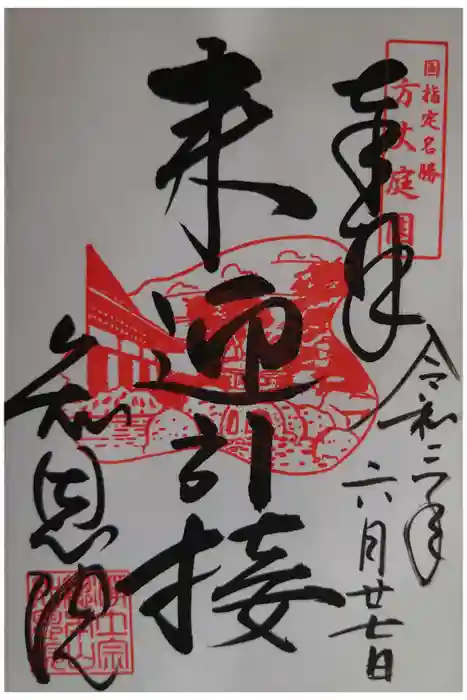 国指定名勝
方丈庭園
奉拝
令和三年
六月廿七日
来迎引接
知恩院